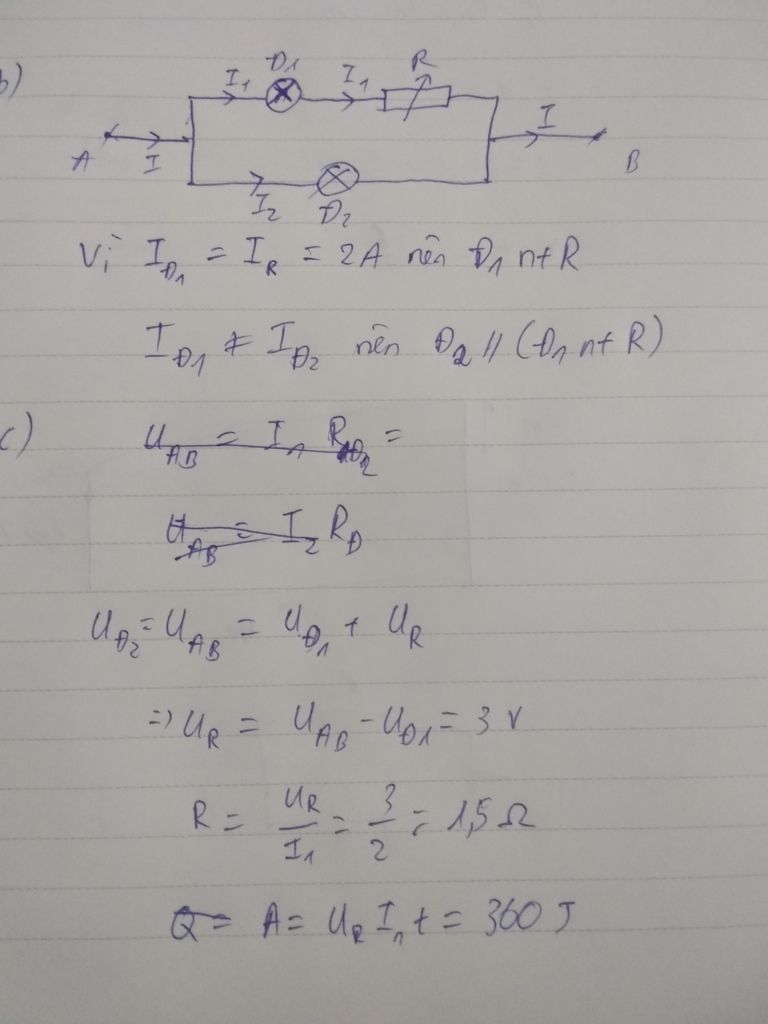 b)
Đ1
R
I1
I1
A
I
I
B
I2
Đ2
Vì I_Đ1 = I_R = 2A nên Đ1 nt R
I_Đ1 ≠ I_Đ2 nên Đ2 // (Đ1 nt R)
c)
U_AB = I1
U_AB = I2 R_Đ
U_Đ2 = U_AB = U_Đ1 + U_R
=> U_R = U_AB - U_Đ1 = 3 V
R = U_R/I1 = 3/2 = 1,5 Ω
Q = A = U_R I1 t = 360 J